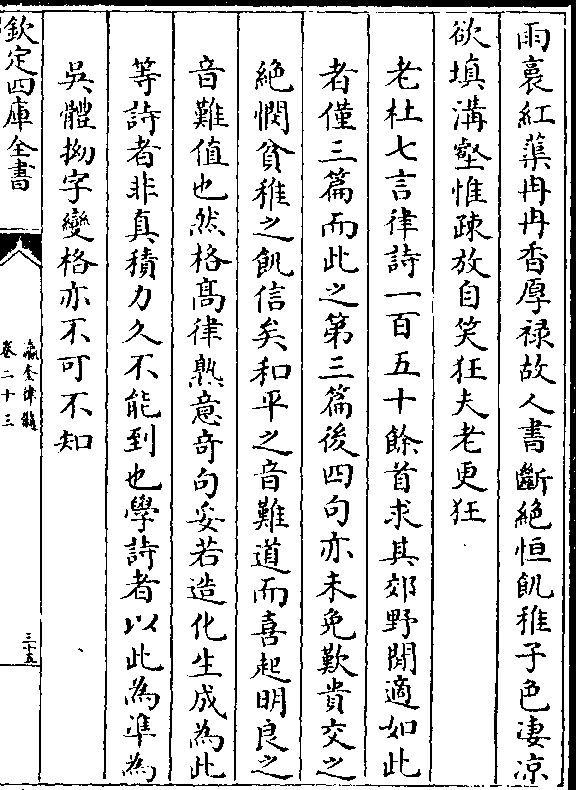 雨裛紅蕖冉冉香厚禄故人書斷絶恒飢稚子色凄凉
欲填溝壑惟疎放自笑狂夫老更狂
老杜七言律詩一百五十餘首求其郊野閒適如此
者僅三篇而此之第三篇後四句亦未免歎貴交之
絶憫貧稚之飢信矣和平之音難道而喜起明良之
音難值也然格髙律熟意奇句妥若造化生成為此
等詩者非真積力久不能到也學詩者以此為凖為
吳體拗字變格亦不可不知
欽定四庫全書
瀛奎律髓
卷二十三
三十五